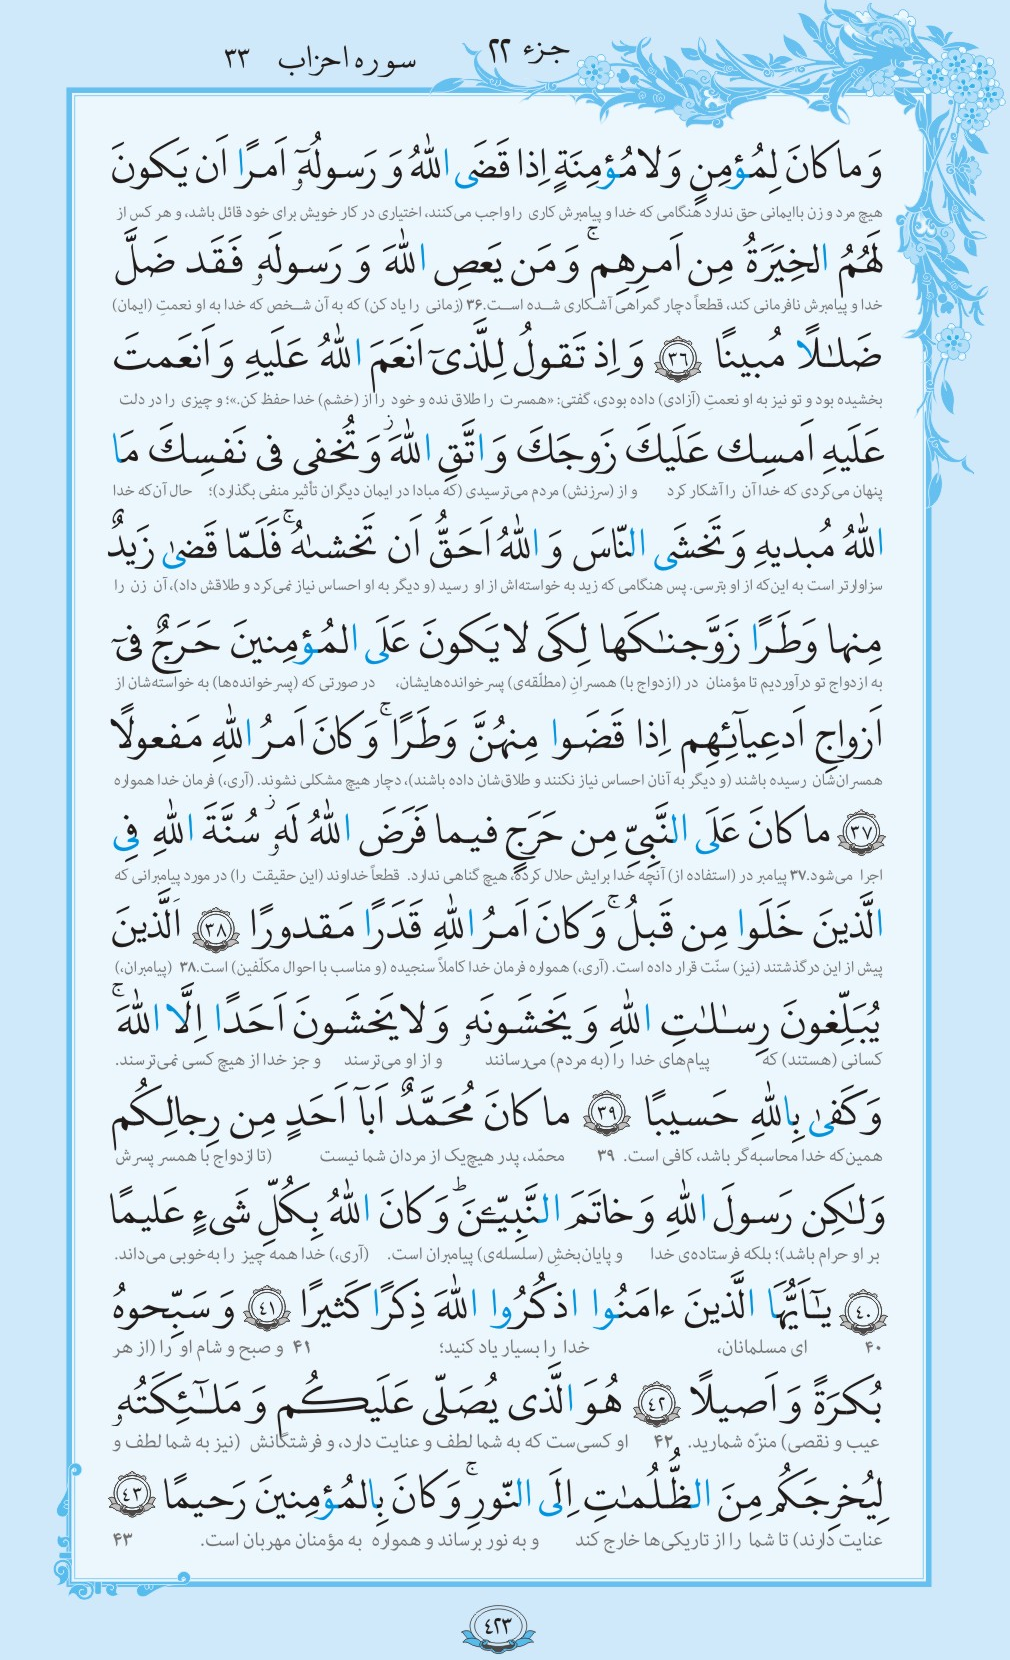 جزء ۲۲
سوره احزاب ۳۳
وَ ما كانَ لِمُؤمِنٍ وَ لا مُؤمِنَةٍ اِذا قَضَى اللّٰهُ وَ رَسولُهٓ اَمرًا اَن يَكونَ
هیچ مرد و زن باایمانی حق ندارد هنگامی که خدا و پیامبرش کاری را واجب می‌کنند، اختیاری در کار خویش برای خود قائل باشد، و هر کس از
لَهُمُ الخِيَرَةُ مِن اَمرِهِم ۚ وَ مَن يَعصِ اللّٰهَ وَ رَسولَهٗ فَقَد ضَلَّ
خدا و پیامبرش نافرمانی کند، قطعاً دچار گمراهی آشکاری شده است.۳۶ (زمانی را یاد کن) که به آن شخص که خدا به او نعمتِ (ایمان)
ضَلـٰلًا مُبينًا ﴿٣٦﴾ وَ اِذ تَقولُ لِلَّذىٓ اَنعَمَ اللّٰهُ عَلَيهِ وَ اَنعَمتَ
بخشیده بود و تو نیز به او نعمتِ (آزادی) داده بودی، گفتی: «همسرت را طلاق نده و خود را از (خشم) خدا حفظ کن.»؛ و چیزی را در دلت
عَلَيهِ اَمسِك عَلَيكَ زَوجَكَ وَ اتَّقِ اللّٰهَ ز وَ تُخفى فى نَفسِكَ مَا
پنهان می‌کردی که خدا آن را آشکار کرد و از (سرزنش) مردم می‌ترسیدی (که مبادا در ایمان دیگران تأثیر منفی بگذارد)؛ حال آن‌که خدا
اللّٰهُ مُبديهِ وَ تَخشَى النّاسَ وَ اللّٰهُ اَحَقُّ اَن تَخشىٰهُ ۚ فَلَمّا قَضىٰ زَيدٌ
سزاوارتر است به این‌که از او بترسی. پس هنگامی که زید به خواسته‌اش از او رسید (و دیگر به او احساس نیاز نمی‌کرد و طلاقش داد)، آن زن را
مِنها وَطَرًا زَوَّجنـٰكَها لِكَى لا يَكونَ عَلَى المُؤمِنينَ حَرَجٌ فىٓ
به ازدواج تو درآوردیم تا مؤمنان در (ازدواج با) همسرانِ (مطلّقه‌ی) پسرخوانده‌هایشان، در صورتی که (پسرخوانده‌ها) به خواسته‌شان از
اَزواجِ اَدعِيآئِهِم اِذا قَضَوا مِنهُنَّ وَطَرًا ۚ وَ كانَ اَمرُ اللّٰهِ مَفعولًا
همسران‌شان رسیده باشند (و دیگر به آنان احساس نیاز نکنند و طلاق‌شان داده باشند)، دچار هیچ مشکلی نشوند. (آری،) فرمان خدا همواره
﴿٣٧﴾ ما كانَ عَلَى النَّبِىِّ مِن حَرَجٍ فيما فَرَضَ اللّٰهُ لَهٗ ز سُنَّةَ اللّٰهِ فِى
اجرا می‌شود.۳۷ پیامبر در (استفاده از) آنچه خدا برایش حلال کرده، هیچ گناهی ندارد. قطعاً خداوند (این حقیقت را) در مورد پیامبرانی که
الَّذينَ خَلَوا مِن قَبلُ ۚ وَ كانَ اَمرُ اللّٰهِ قَدَرًا مَقدورًا ﴿٣٨﴾ اَلَّذينَ
پیش از این درگذشتند (نیز) سنّت قرار داده است. (آری،) همواره فرمان خدا کاملاً سنجیده (و مناسب با احوال مکلّفین) است.۳۸ (پیامبران،)
يُبَلِّغونَ رِسـٰلـٰتِ اللّٰهِ وَ يَخشَونَهٗ وَ لا يَخشَونَ اَحَدًا اِلَّا اللّٰهَ ۚ
کسانی (هستند) که پیام‌های خدا را (به مردم) می‌رسانند و از او می‌ترسند و جز خدا از هیچ کسی نمی‌ترسند.
وَ كَفىٰ بِاللّٰهِ حَسيبًا ﴿٣٩﴾ ما كانَ مُحَمَّدٌ اَبآ اَحَدٍ مِن رِجالِكُم
همین‌که خدا محاسبه‌گر باشد، کافی است. ۳۹ محمّد، پدر هیچ‌یک از مردان شما نیست (تا ازدواج با همسر پسرش
وَ لـٰكِن رَسولَ اللّٰهِ وَ خاتَمَ النَّبِيّـۧنَ ط وَ كانَ اللّٰهُ بِكُلِّ شَىءٍ عَليمًا
بر او حرام باشد)؛ بلکه فرستاده‌ی خدا و پایان‌بخشِ (سلسله‌ی) پیامبران است. (آری،) خدا همه چیز را به‌خوبی می‌داند.
﴿٤٠﴾ يـٰٓاَيُّهَا الَّذينَ ءامَنُوا اذكُرُوا اللّٰهَ ذِكرًا كَثيرًا ﴿٤١﴾ وَ سَبِّحوهُ
۴۰ ای مسلمانان، خدا را بسیار یاد کنید؛ ۴۱ و صبح و شام او را (از هر
بُكرَةً وَ اَصيلًا ﴿٤٢﴾ هُوَ الَّذى يُصَلّى عَلَيكُم وَ مَلـٰٓئِكَتُهٗ
عیب و نقصی) منزّه شمارید. ۴۲ او کسی‌ست که به شما لطف و عنایت دارد، و فرشتگانش (نیز به شما لطف و
لِيُخرِجَكُم مِنَ الظُّلُمـٰتِ اِلَى النّورِ ۚ وَ كانَ بِالمُؤمِنينَ رَحيمًا ﴿٤٣﴾
عنایت دارند) تا شما را از تاریکی‌ها خارج کند و به نور برساند و همواره به مؤمنان مهربان است. ۴۳
٤٢٣